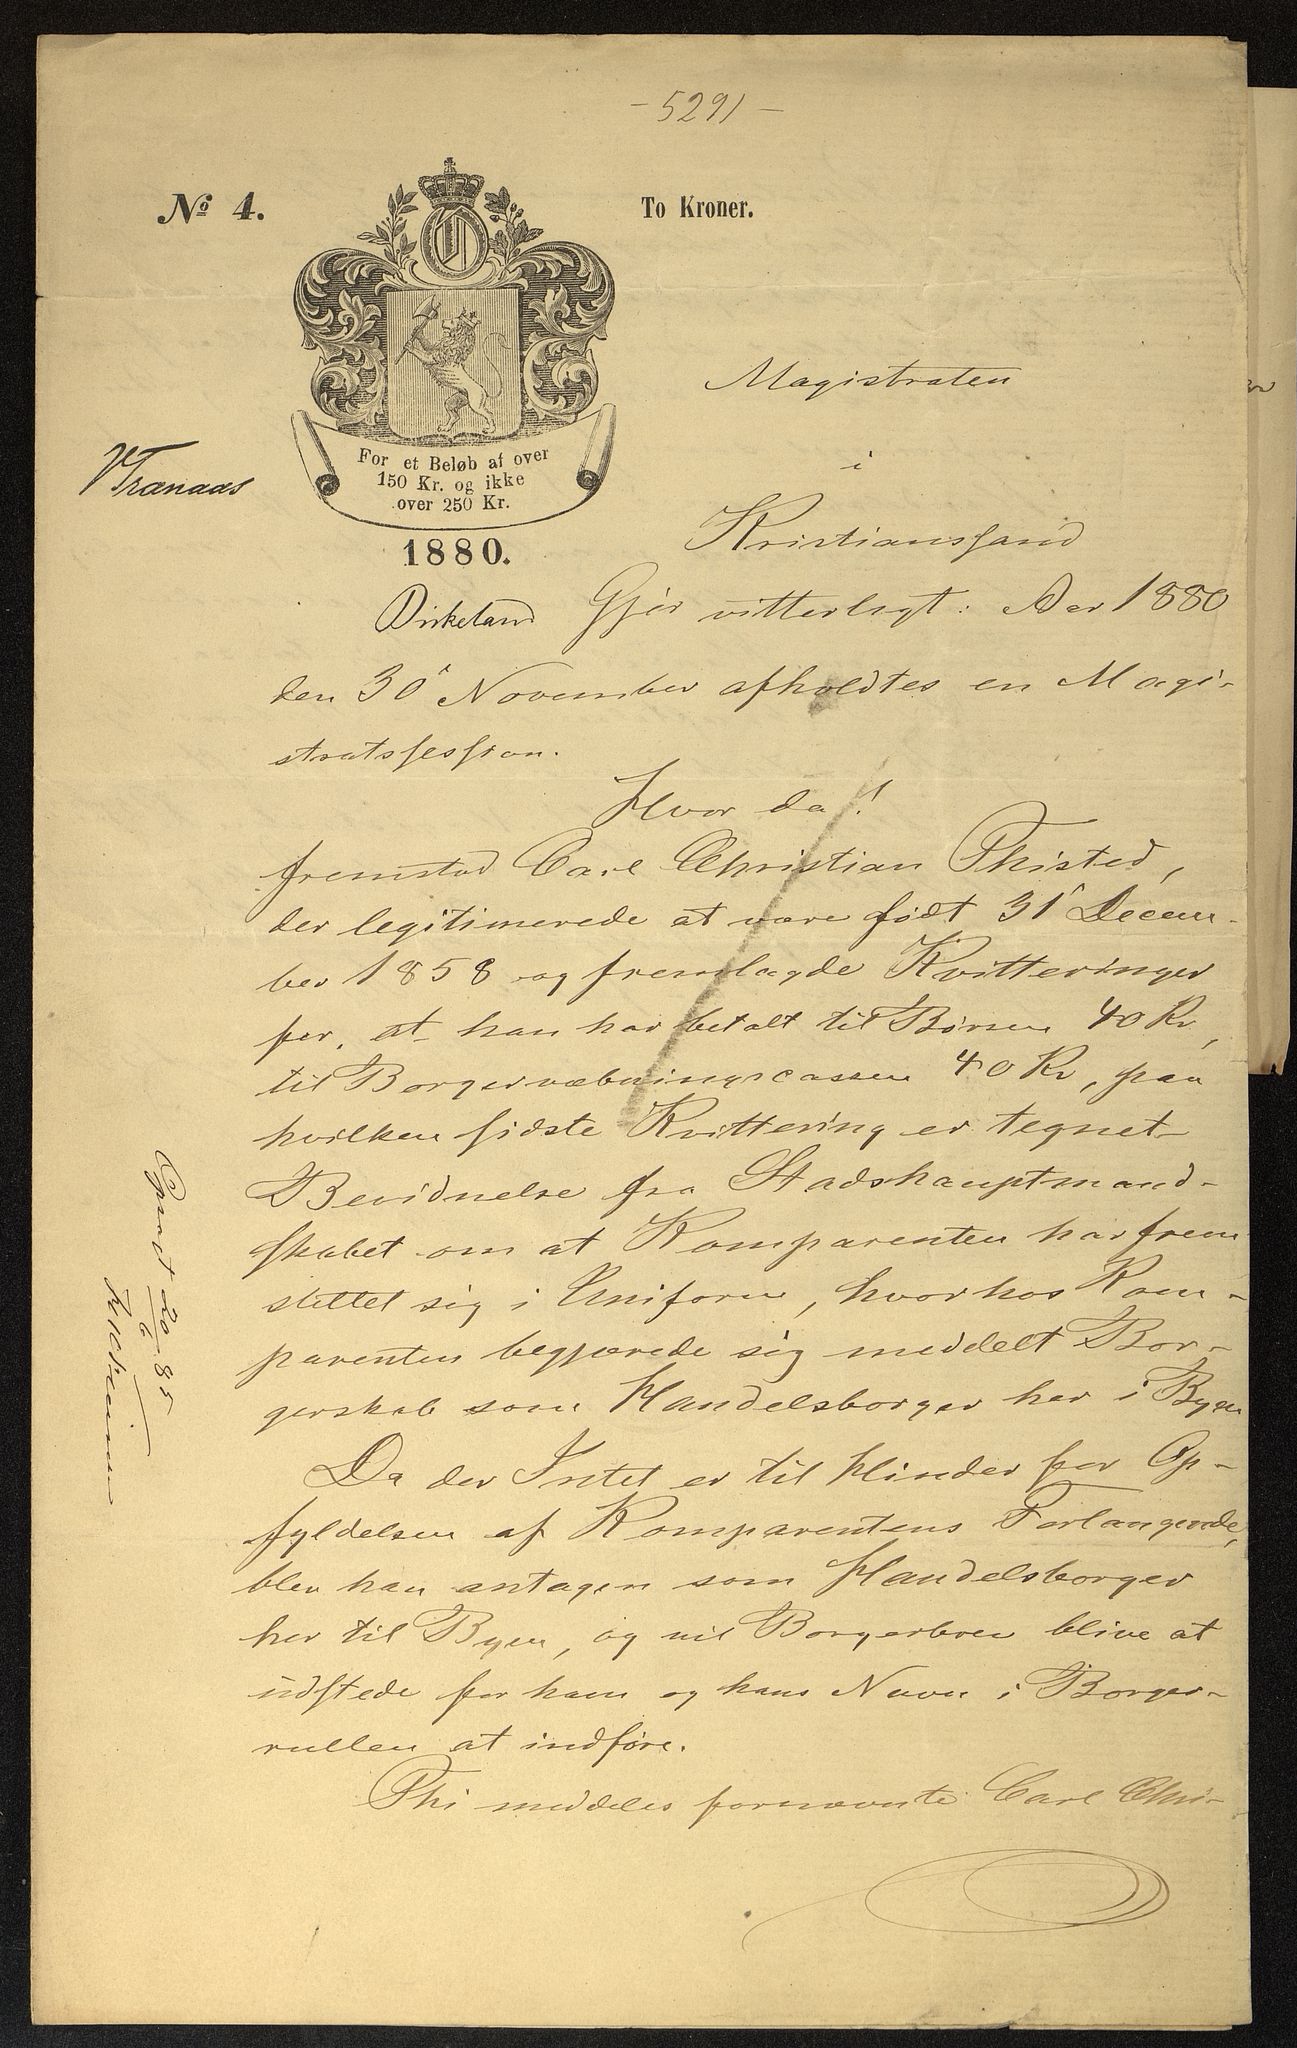 - 5291 -
No 4.
To Kroner.
For et Beløb af over
150 Kr. og ikke
over 250 Kr.
1880.
Magistraten
i
Kristianssand
VTranaas
Birkeland
Gjør vitterligt: Aar 1880
den 30 November afholdtes en Magi-
stratssession.
Hvor da!
fremstod Carl Christian Thisted,
der legitimerede at være født 31 Decem-
ber 1858 og fremlagde Kvitteringer
for, at han har betalt til Børsen 40 Kr,
til Borgervæbningscassen 40 Kr, paa
hvilken sidste Kvittering er tegnet
Bevidnelse fra Stadshauptmand-
skabet om at Komparenten har frem
stillet sig i Uniform, hvorhos Kom-
parenten begjærede sig meddelt Bor-
gerskab som Handelsborger her i Byen
Da der Intet er til Hinder for Op-
fyldelsen af Komparentens Forlangende,
blev han antagen som Handelsborger
her til Byen, og vil Borgerbrev blive at
udstede for ham og hans Navn i Borger-
rullen at indføre.
Thi meddeles fornævnte Carl Chri-
Opsagt 20/6 85